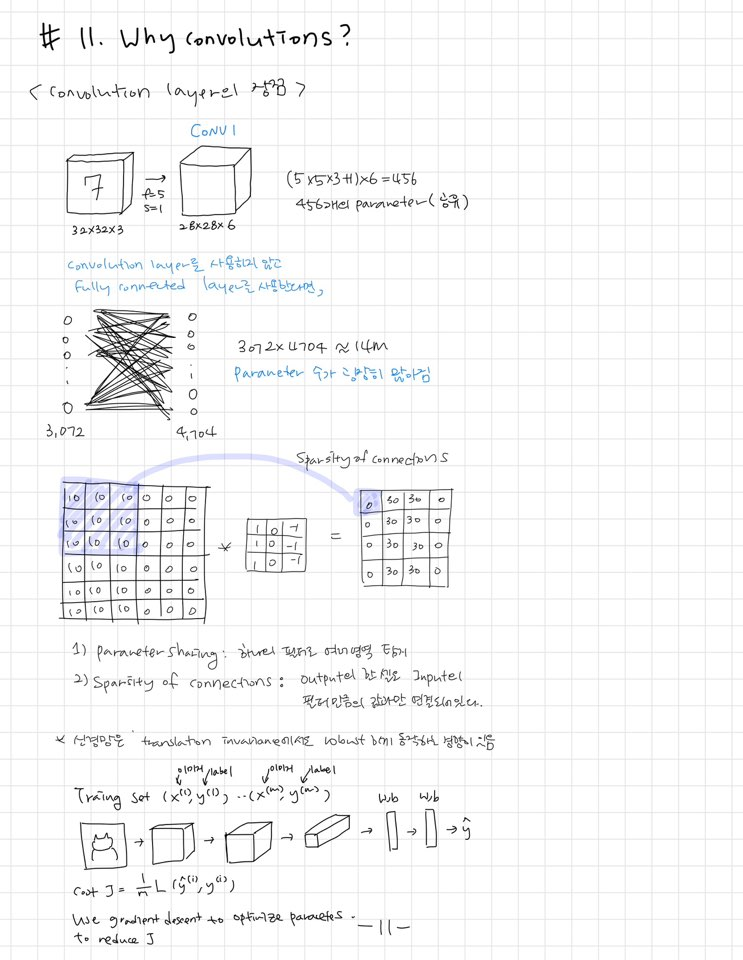 # 11. Why convolutions?
< Convolution layer의 장점 >
CONV 1
7
f=5
s=1
32x32x3
28x28x6
(5x5x3+1)x6=456
456개의 parameter(공유)
Convolution layer를 사용하지 않고
Fully connected layer를 사용한다면,
3072x4704≈14M
Parameter 수가 굉장히 많아짐
3,072
4,704
Sparsity of connections
10 10 10 0 0 0
10 10 10 0 0 0
10 10 10 0 0 0
10 10 10 0 0 0
10 10 10 0 0 0
10 10 10 0 0 0
*
1 0 -1
1 0 -1
1 0 -1
=
0 30 30 0
0 30 30 0
0 30 30 0
0 30 30 0
1) parameter sharing : 하나의 필터로 여러 영역 탐지
2) Sparsity of connections : output의 한 셀은 Input의
필터만큼의 값과만 연결되어있다.
* 신경망은 translation invariane에서도 robust 하게 동작하는 경향이 있음
이미지 label 이미지 label
Traing set (x⁽¹⁾, y⁽¹⁾) ··(x⁽ᵐ⁾, y⁽ᵐ⁾)
w,b w,b
→ ŷ
Cost J = 1/m L (ŷ⁽ⁱ⁾, y⁽ⁱ⁾)
Use gradient descent to optimize parametes.
to reduce J
-11-